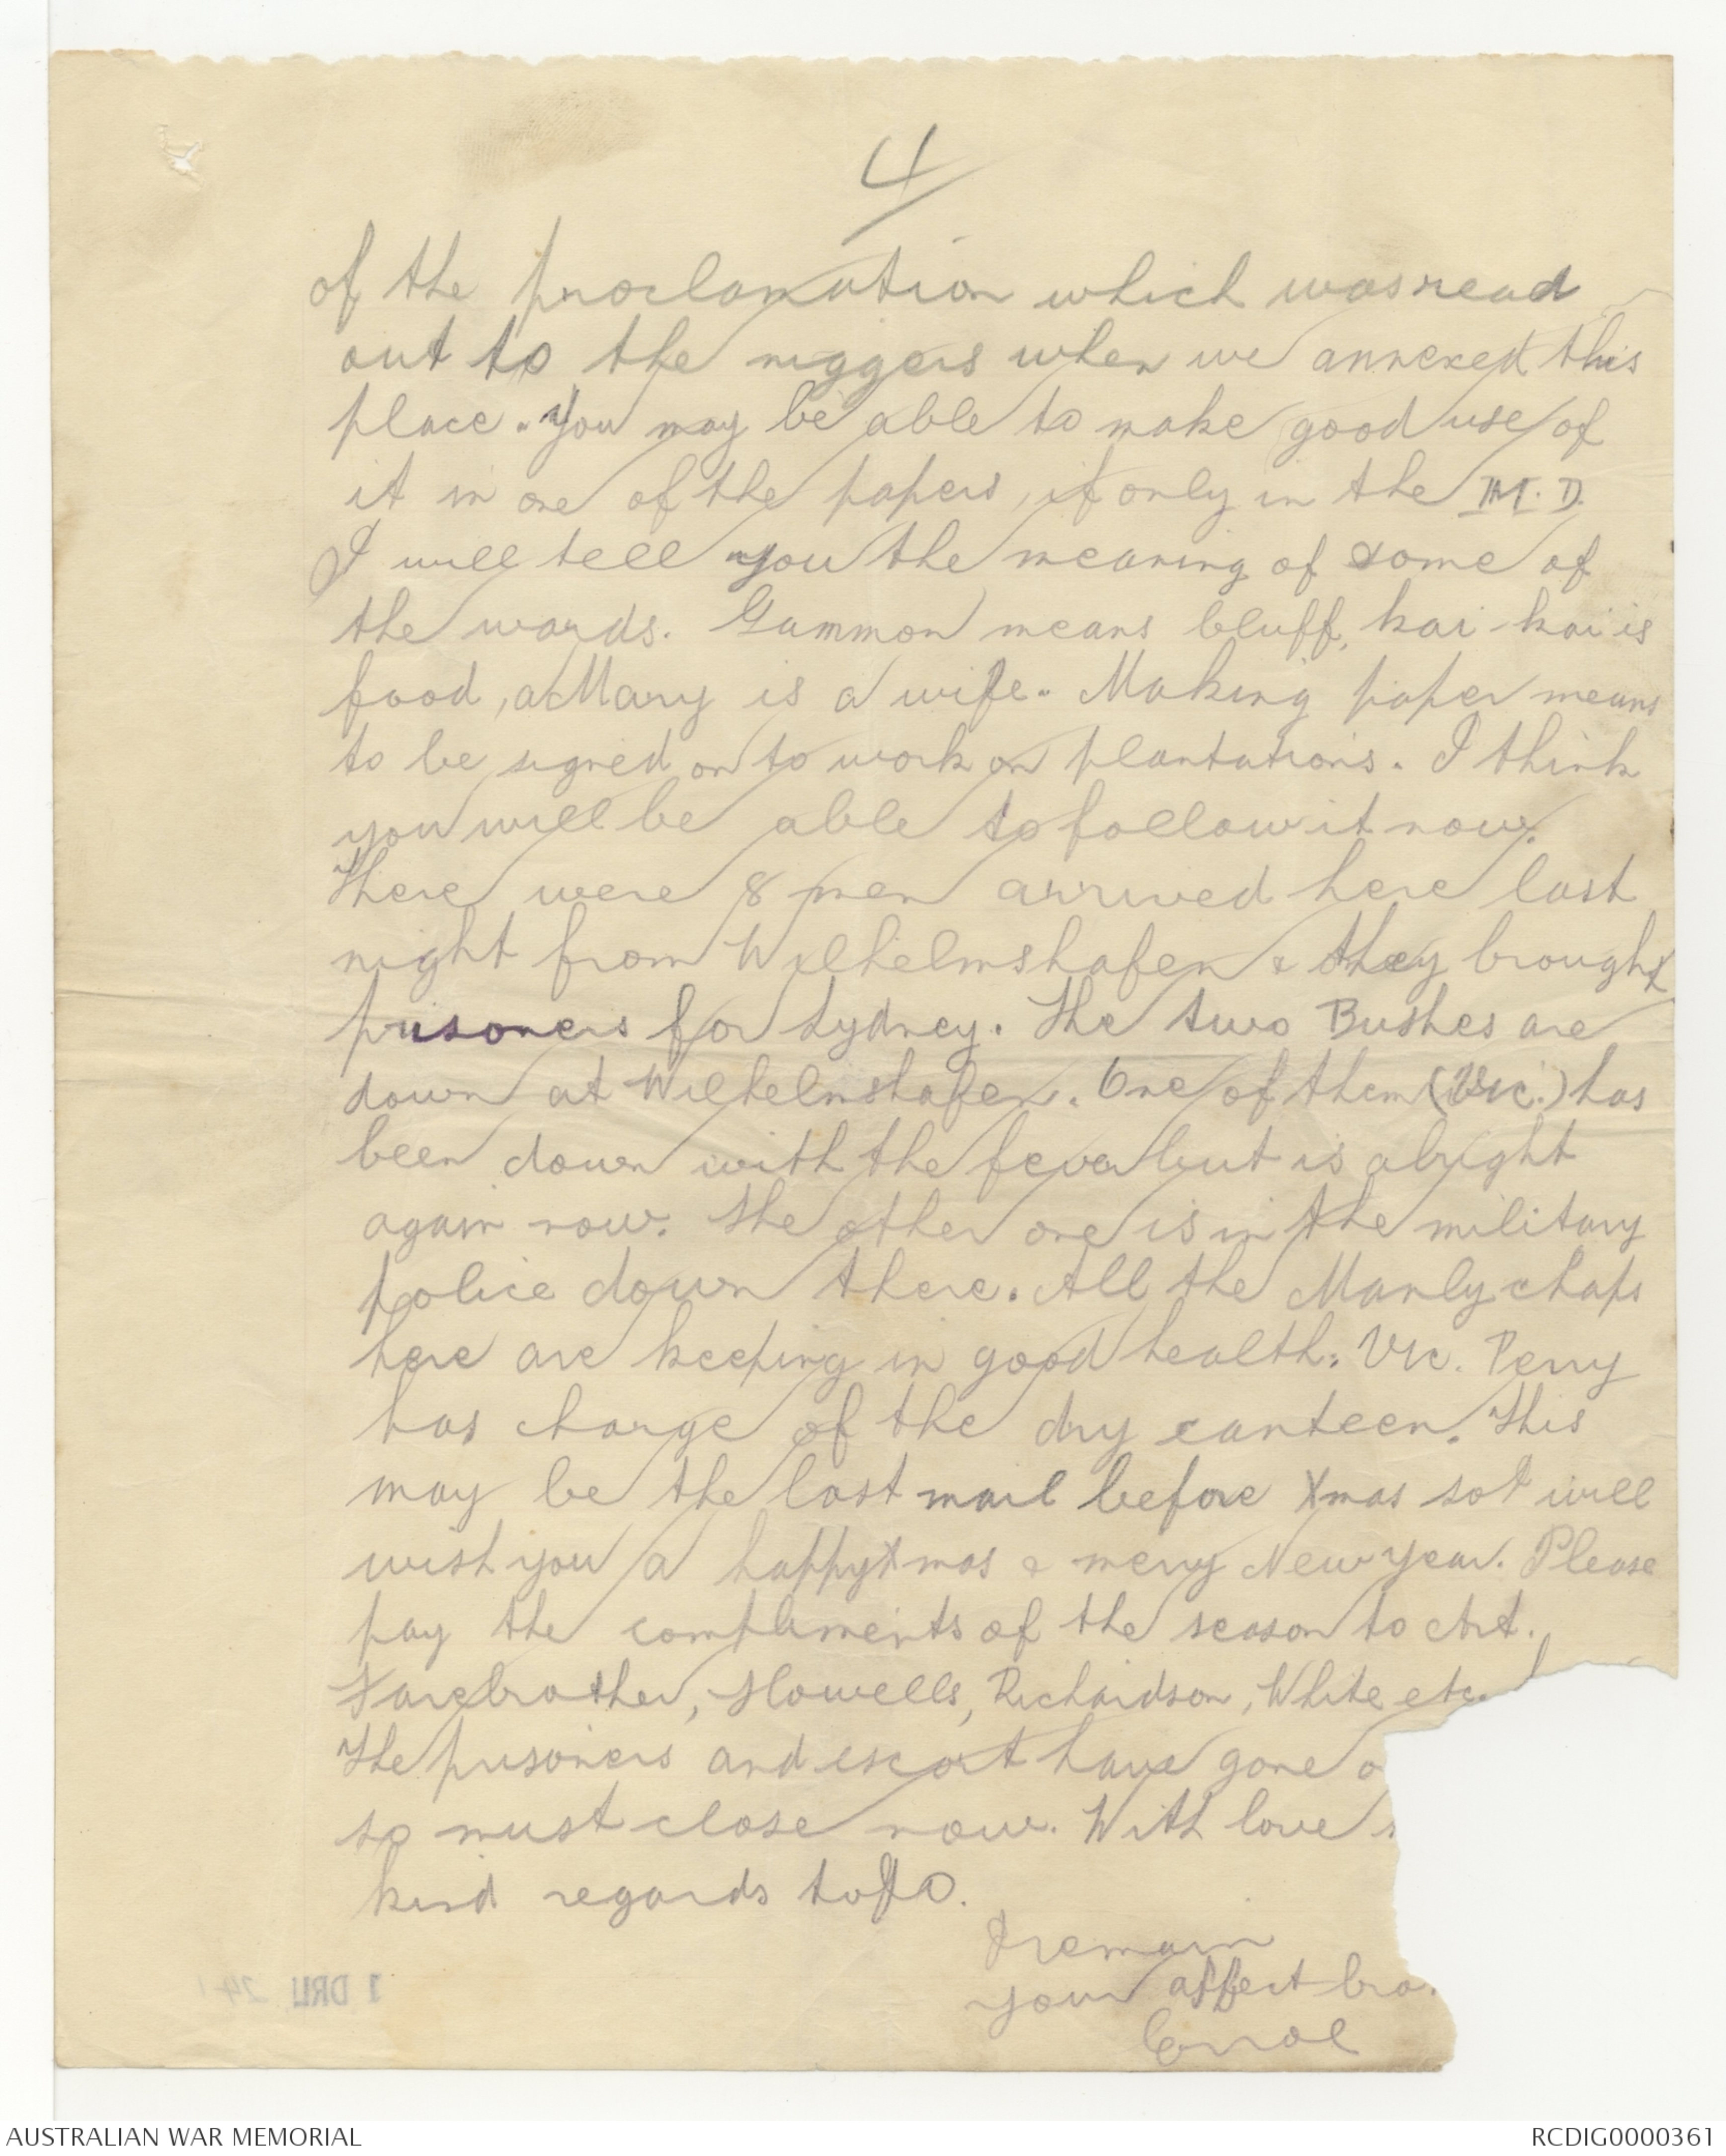 4/
of the proclamation which was read
out to the niggers when we annexed this
place. You may be able to make good use of
it in one of the papers, if only in the M.D.
I will tell you the meaning of some of
the words. Gammon means bluff, kai-kai is
food, a Mary is a wife. Making paper means
to be signed on to work on plantations. I think
you will be able to follow it now.
There were 8 men arrived here last
night from Wilhelmshafen & they brought
prisoners for Sydney. The two Bushes are
down at Wilhelmshafen. One of them (Vic.) has
been down with the fever but is alright
again now. The other one is in the military
police down there. All the Manly chaps
here are keeping in good health. Vic. Perry
has charge of the dry canteen. This
may be the last mail before Xmas so I will
wish you a happy Xmas & merry New Year. Please
pay the compliments of the season to Art.
Farebrother, Howells, Richardson, White etc.
The prisoners and escort have gone o
so must close now. With love
kind regards to
I remain
your affect bro.
Errol
1 DRL 24
AUSTRALIAN WAR MEMORIAL
RCDIG0000361